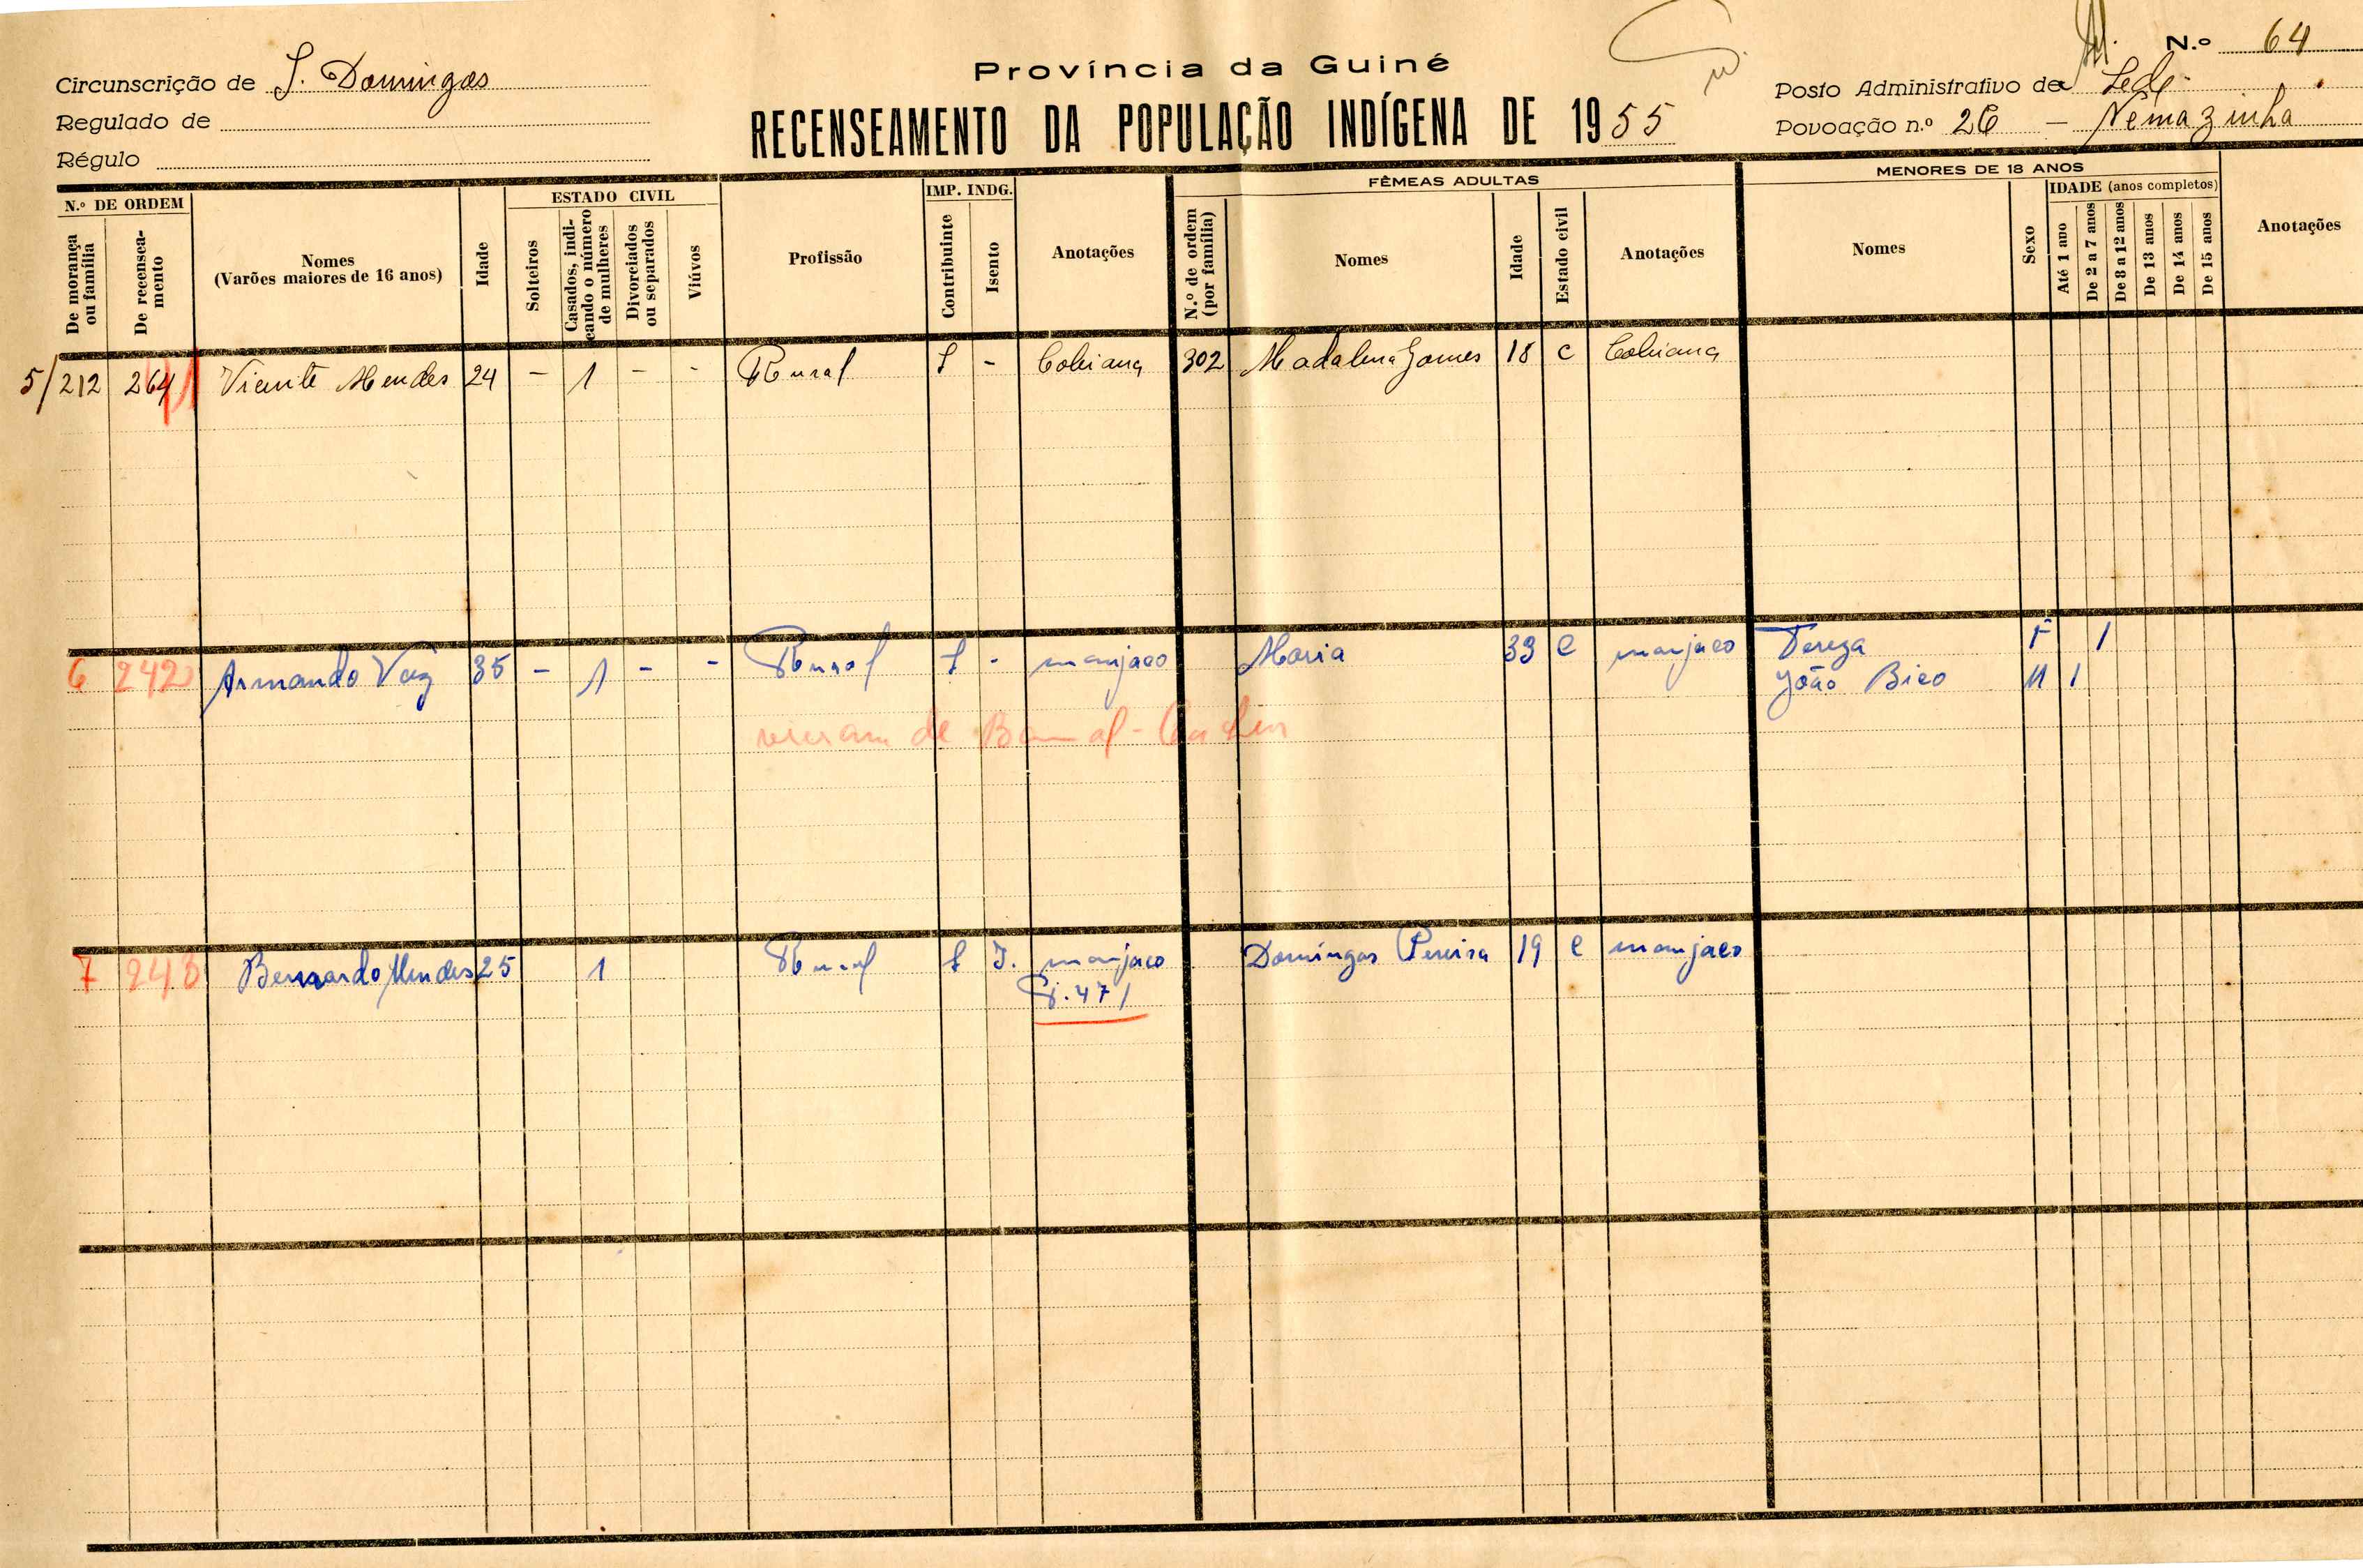 N.º 64
Província da Guiné
Circunscrição de S. Domingos
Posto Administrativo da Sede
Regulado de
RECENSEAMENTO DA POPULAÇÃO INDÍGENA DE 1955
Povoação n.º 26 — Nemazinha
Régulo
N.º DE ORDEM
De morança ou família
De recenseamento
Nomes
(Varões maiores de 16 anos)
Idade
ESTADO CIVIL
Solteiros
Casados, indicando o número de mulheres
Divorciados ou separados
Viúvos
Profissão
IMP. INDG.
Contribuinte
Isento
Anotações
FÊMEAS ADULTAS
N.º de ordem (por família)
Nomes
Idade
Estado civil
Anotações
MENORES DE 18 ANOS
Nomes
Sexo
IDADE (anos completos)
Até 1 ano
De 2 a 7 anos
De 8 a 12 anos
De 13 anos
De 14 anos
De 15 anos
Anotações
5/212 264 Vicente Mendes 24 - 1 - - Rural S - Cobiana 302 Madalena Gomes 18 C Cobiana
6 242 Armando Vaz 35 - 1 - - Rural S - manjaco Maria 33 C manjaco Tereza F 1
João Bico M 1
vieram de
7 243 Bernardo Mendes 25 1 Rural S I. manjaco Domingas Pereira 19 C manjaco
471